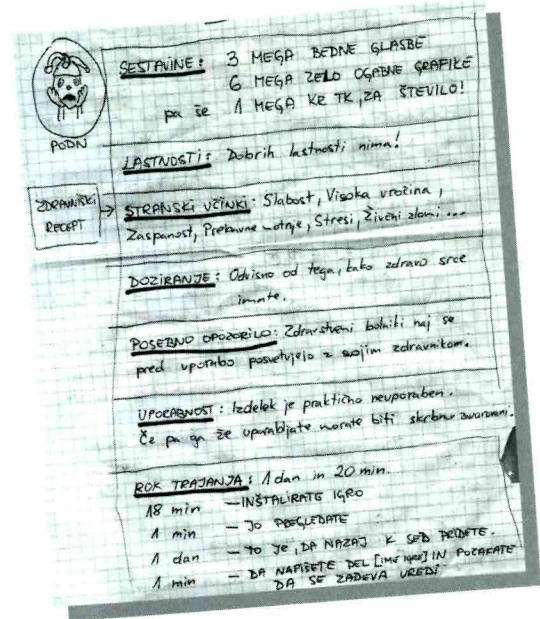 SESTAVINE: 3 MEGA BEDNE GLASBE
6 MEGA ZELO OGABNE GRAFIKE
pa še 1 MEGA KR TK, ZA ŠTEVILO!
PODN
LASTNOSTI: Dobrih lastnosti nima!
ZDRAVNIŠKI
RECEPT
STRANSKI UČINKI: Slabost, Visoka vročina,
Zaspanost, Prebavne motnje, Stresi, Živčni zlomi ...
DOZIRANJE: Odvisno od tega, kako zdravo srce
imate.
POSEBNO OPOZORILO: Zdravstveni bolniki naj se
pred uporabo posvetujejo z svojim zdravnikom.
UPORABNOST: Izdelek je praktično neuporaben.
Če pa ga že uporabljate morate biti skrbno zavarovani.
ROK TRAJANJA: 1 dan in 20 min.
18 min — INŠTALIRATE IGRO
1 min — JO PREGLEDATE
1 dan — TO JE, DA NAZAJ K SEB PRIDETE.
1 min — DA NAPIŠETE DEL [IME IGRE] IN POČAKATE
DA SE ZADEVA UREDI